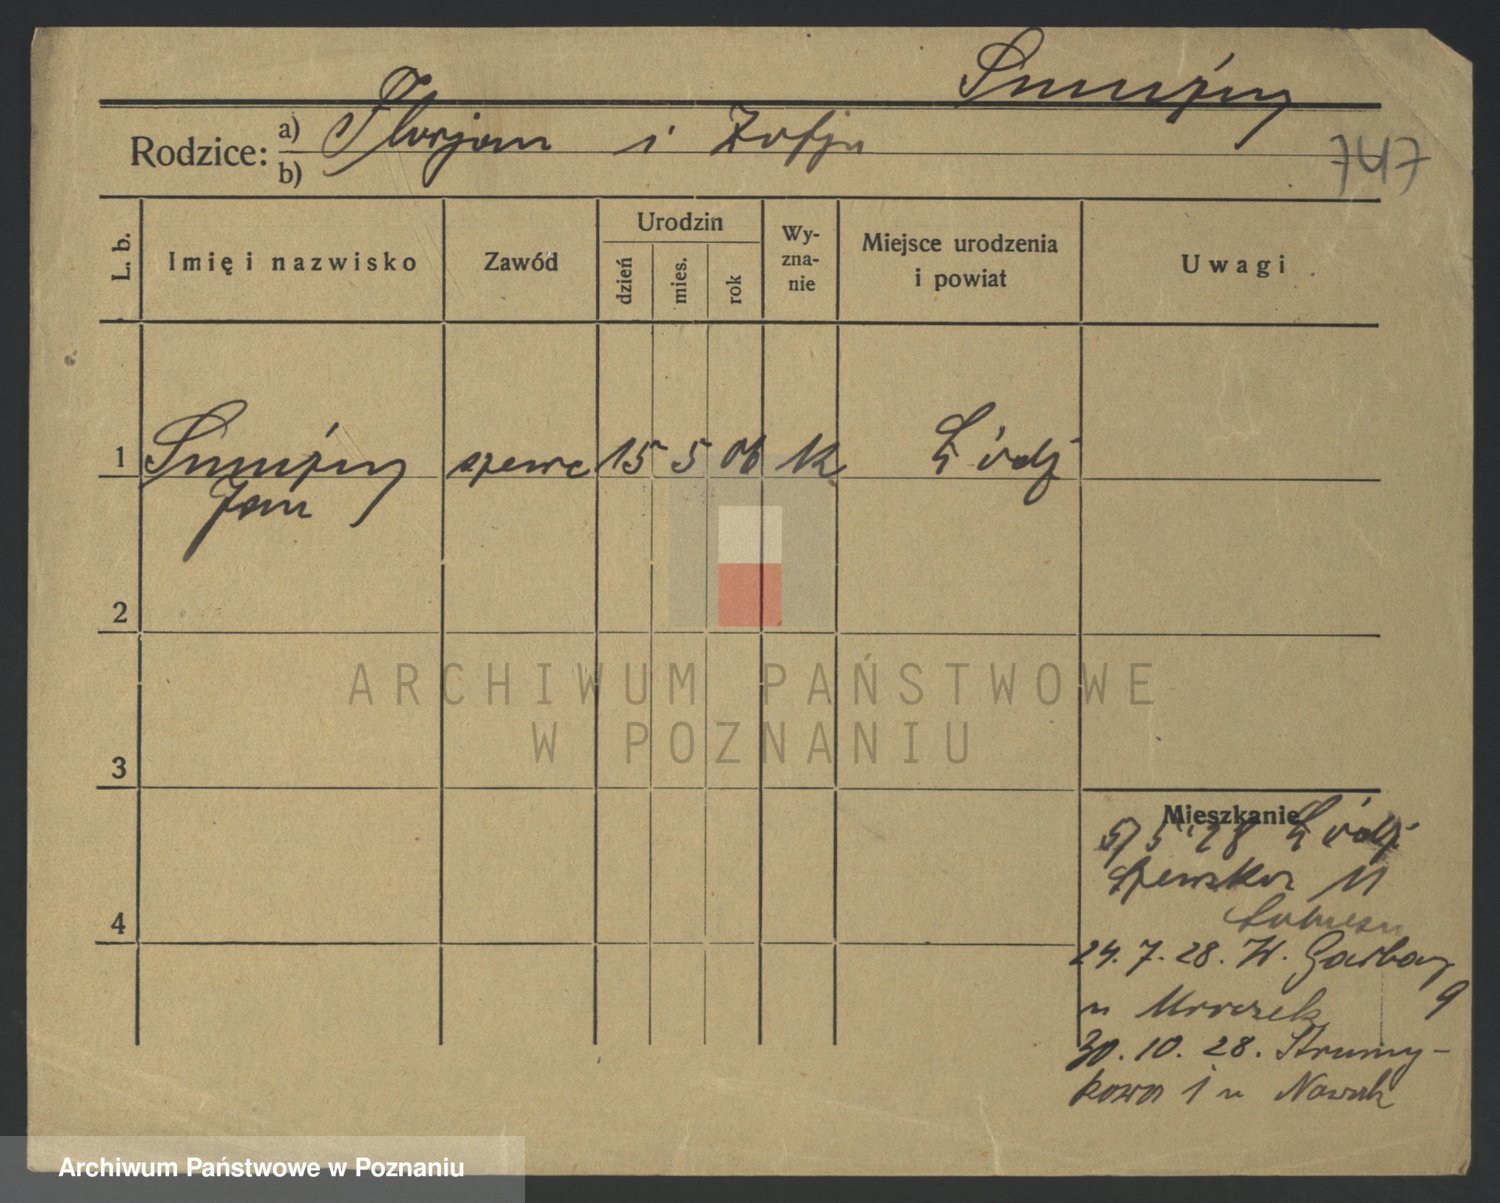 747
Rodzice:
a) Florjan i Zofja
b)
L. b.
Imię i nazwisko
Zawód
Urodzin
dzień
mies.
rok
Wy-
zna-
nie
Miejsce urodzenia
i powiat
Uwagi
1 szewc 15 5 06 k Łódź
Jan
2
3
4
Mieszkanie
5/5 28 Łódź
Szewska 11
24. 7. 28. W. Garbary
9
u Mroczek
30. 10. 28. Strumy-
kowa 1 u Nowak
ARCHIWUM PAŃSTWOWE
W POZNANIU
Archiwum Państwowe w Poznaniu